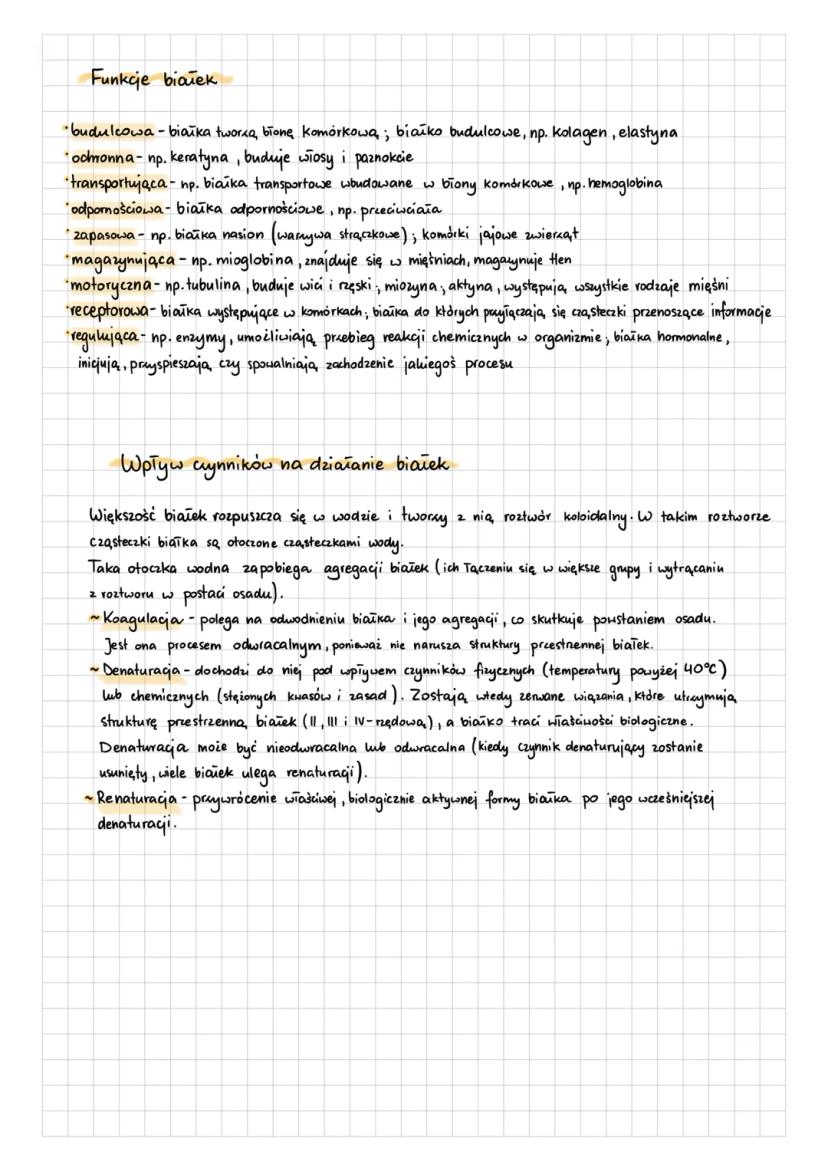 Funkcje białek
·budulcowa - białka tworzą błonę komórkową ; białko budulcowe, np. kolagen , elastyna
·ochronna - np. keratyna , buduje włosy i paznokcie
·transportująca - np. białka transportowe wbudowane w błony komórkowe , np. hemoglobina
·odpornościowa - białka odpornościowe , np. przeciwciała
·zapasowa - np. białka nasion (warzywa strączkowe) ; komórki jajowe zwierząt
·magazynująca - np. mioglobina , znajduje się w mięśniach, magazynuje tlen
·motoryczna - np. tubulina , buduje wici i rzęski ; miozyna ; aktyna , występują wszystkie rodzaje mięśni
·receptorowa - białka występujące w komórkach ; białka do których przyłączają się cząsteczki przenoszące informacje
·regulująca - np. enzymy , umożliwiają przebieg reakcji chemicznych w organizmie ; białka hormonalne ,
inicjują , przyspieszają czy spowalniają zachodzenie jakiegoś procesu
Wpływ czynników na działanie białek
Większość białek rozpuszcza się w wodzie i tworzy z nią roztwór koloidalny. W takim roztworze
cząsteczki białka są otoczone cząsteczkami wody.
Taka otoczka wodna zapobiega agregacji białek (ich łączeniu się w większe grupy i wytrącaniu
z roztworu w postaci osadu).
~ Koagulacja - polega na odwodnieniu białka i jego agregacji , co skutkuje powstaniem osadu.
Jest ona procesem odwracalnym , ponieważ nie narusza struktury przestrzennej białek.
~ Denaturacja - dochodzi do niej pod wpływem czynników fizycznych (temperatury powyżej 40°C)
lub chemicznych (stężonych kwasów i zasad). Zostają wtedy zerwane wiązania , które utrzymują
strukturę przestrzenną białek (II , III i IV-rzędową) , a białko traci właściwości biologiczne.
Denaturacja może być nieodwracalna lub odwracalna (kiedy czynnik denaturujący zostanie
usunięty , wiele białek ulega renaturacji).
~ Renaturacja - przywrócenie właściwej , biologicznie aktywnej formy białka po jego wcześniejszej
denaturacji.